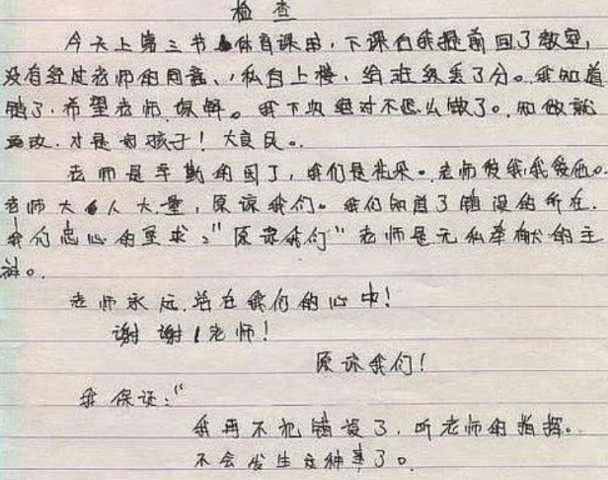 检查
今天上第三节体育课时,下课后我提前回了教室,
没有经过老师的同意,私自上楼,给班级丢了分。我知道
错了.希望老师.谅解。我下次绝对不怎么做了。知做就
要改.才是好孩子!大良民。
老师是辛勤的园丁,我们是花朵。老师发我,我爱他。
老师大人大量,原谅我们。我们知道了错误的所在.
我们忠心的呈求:"原谅我们"老师是无私奉献的主
老师永远.活在我们的心中!
谢谢!老师!
原谅我们!
我保证:"
我再不犯错误了.听老师的指挥。
不会发生这种事了。